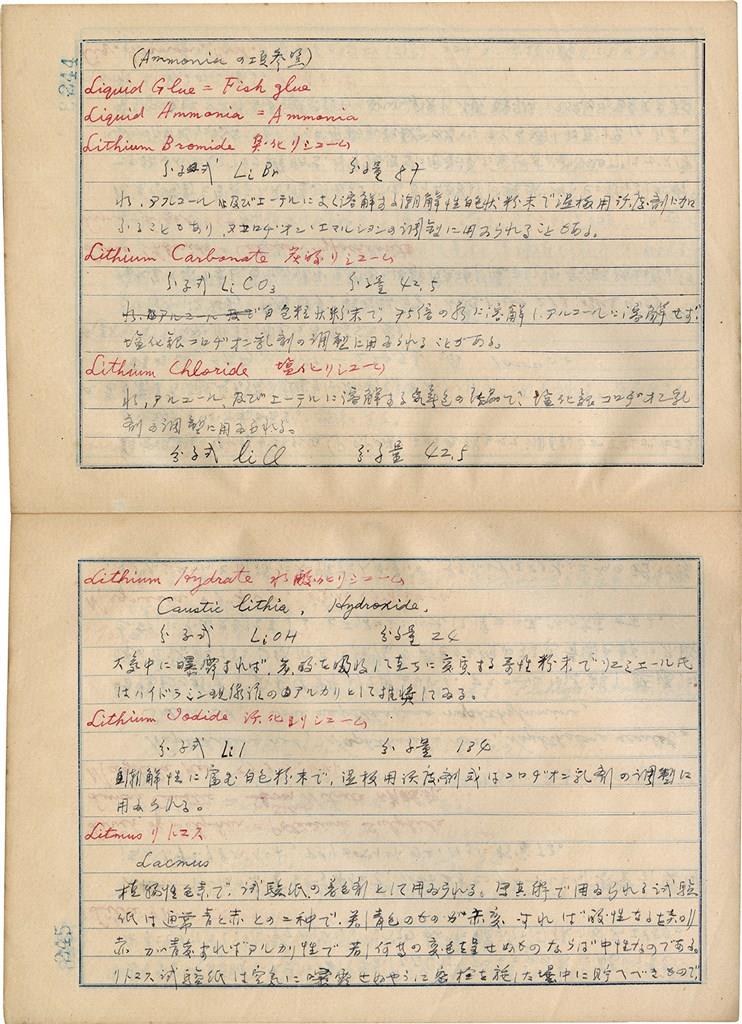 244
(Ammonia の項参照)
Liquid Glue = Fish glue
Liquid Ammonia = Ammonia
Lithium Bromide 臭化リシューム
分子式 LiBr 分子量 87
水、アルコール及びエーテルによく溶解する潮解性白色状粉末で湿板用沃度剤に加
ふることもあり、又コロヂオン・エマルションの調製に用ゐられることがある。
Lithium Carbonate 炭酸リシューム
分子式 LiCO3 分子量 42,5
白色粒状粉末で、75倍の水に溶解し、アルコールに溶解せず、
塩化銀コロヂオン乳剤の調製に用ゐられることがある。
Lithium Chloride 塩化リシューム
水、アルコール、及びエーテルに溶解する結晶で、塩化銀コロヂオン乳
剤の調製に用ゐられる。
分子式 liCl 分子量 42,5
Lithium Hydrate 水酸化リシューム
Caustic lithia, Hydroxide,
分子式 LiOH 分子量 24
大気中に曝露すれば、炭酸を吸收して直ちに変質する粉末でリュミエール氏
はハイドラミン現像液のアルカリとして推奨してゐる。
Lithium Iodide 沃化リシューム
分子式 LiI 分子量 134
潮解性に富む白色粉末で、湿板用沃度剤或はコロヂオン乳剤の調製に
用ゐられる。
Litmus リトマス
Lacmus
植物性色素で、試験紙の着色剤として用ゐられる。写真術で用ゐられる試験
紙は通常青と赤との二種で、若し青色のものが赤変すれば酸性なる
赤が青変すればアルカリ性で若し何等の変色を呈せぬものならば中性なのである。
リトマス試験紙は空気に曝露せぬやうに密栓を施した壜中に貯へべきもので、
245